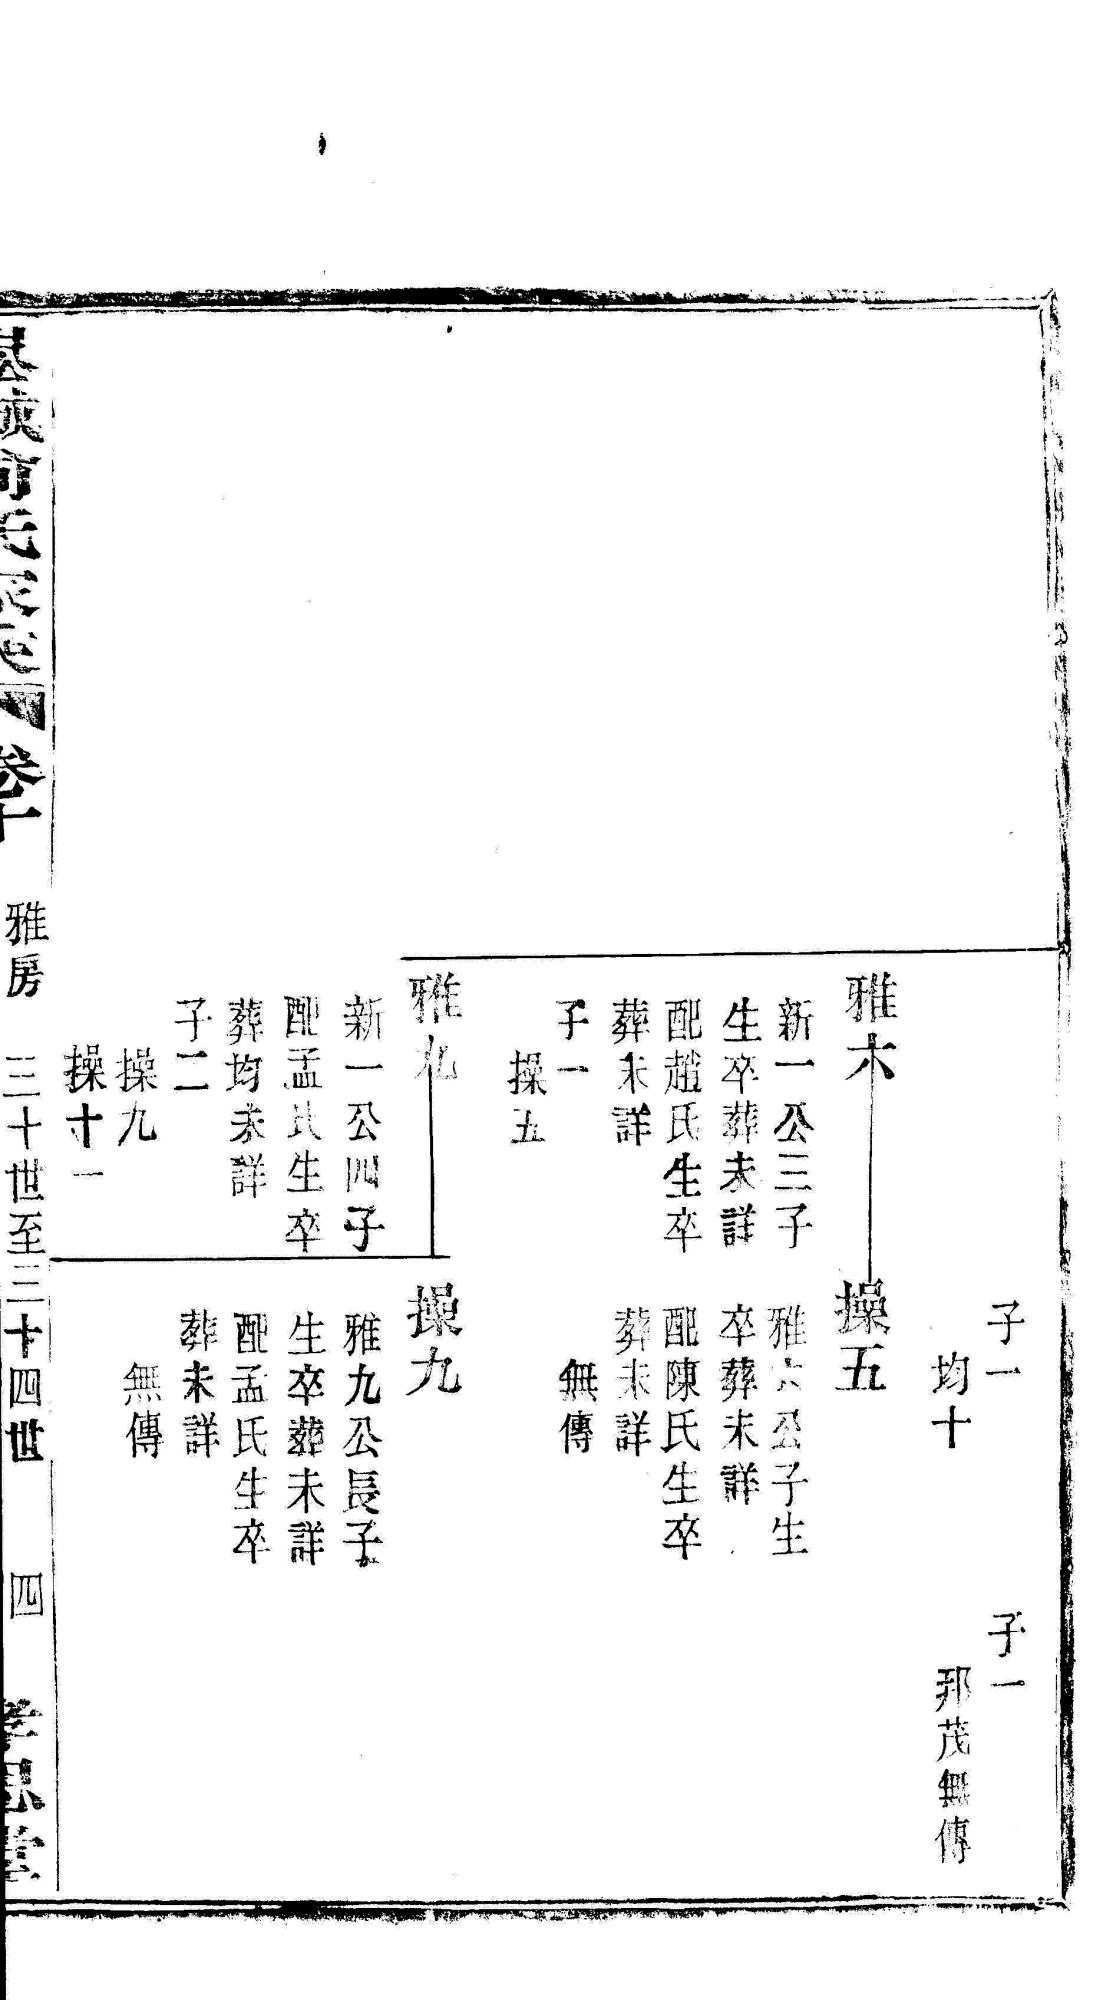 子一
均十
子一
邦茂無傳
雅六
新一公三子
生卒葬未詳
配趙氏生卒
葬未詳
子一
操五
操五
雅六公子生
卒葬未詳
配陳氏生卒
葬未詳
無傳
雅九
新一公四子
配孟氏生卒
葬均未詳
子二
操九
操十一
操九
雅九公長子
生卒葬未詳
配孟氏生卒
葬未詳
無傳
卷十
雅房
三十世至三十四世
四
孝思堂